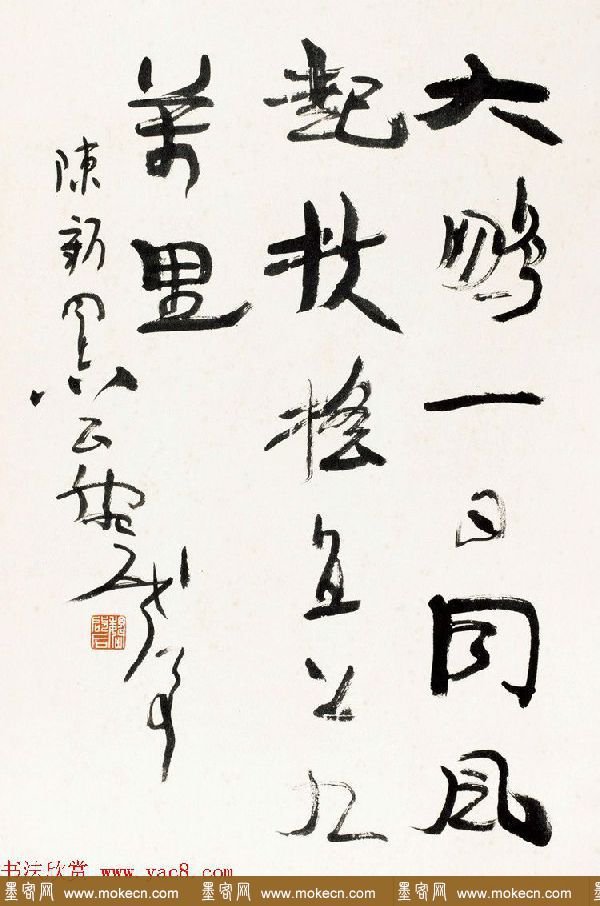 大鵬一日同風
起扶搖直上九
萬里
陳新
书法欣赏 www.yac8.com
墨客网 www.mokecn.com 墨客网 www.mokecn.com 墨客网 www.mokecn.com